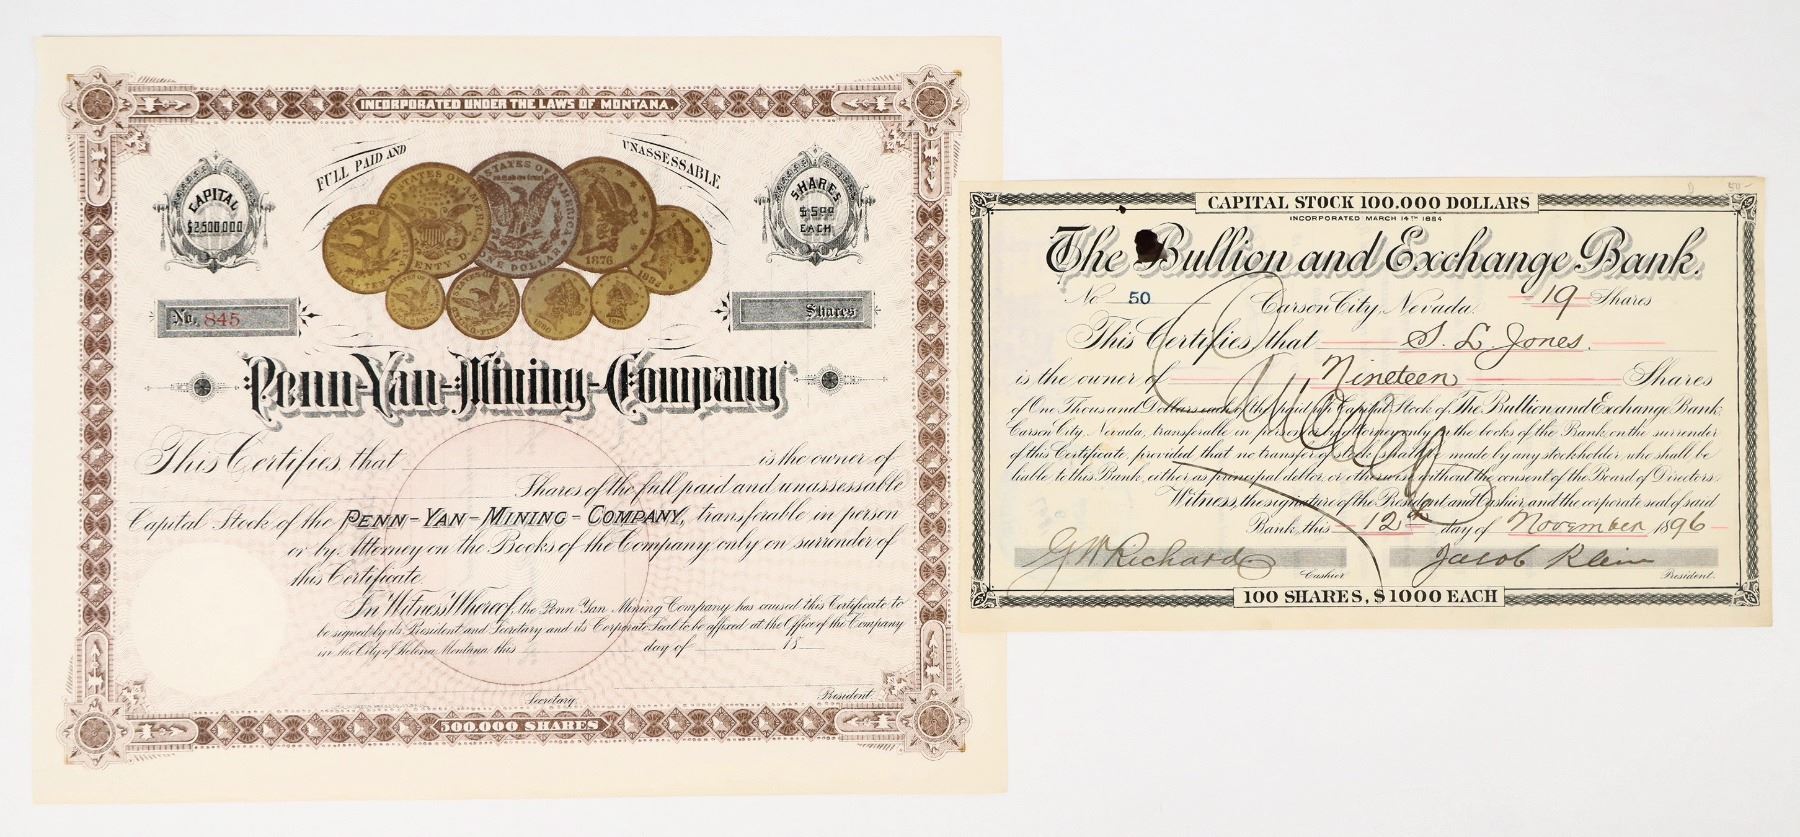 INCORPORATED UNDER THE LAWS OF MONTANA.
FULL PAID AND UNASSESSABLE
CAPITAL
$2500000
SHARES
$5.00
EACH
STATES OF AMERICA
ONE DOLLAR
1876
1880
No. 845
Shares
Penn-Yan-Mining-Company
This Certifies that is the owner of
Shares of the full paid and unassessable
Capital Stock of the PENN-YAN-MINING-COMPANY, transferable in person
or by Attorney on the Books of the Company only on surrender of
this Certificate.
In Witness Whereof, the Penn Yan Mining Company has caused this Certificate to
be signed by its President and Secretary and its Corporate Seal to be affixed at the Office of the Company
in the City of Helena, Montana this day of 18
Secretary. President.
500.000 SHARES
50-
CAPITAL STOCK 100.000 DOLLARS
INCORPORATED MARCH 14TH 1884
The Bullion and Exchange Bank.
No 50 Carson City, Nevada. 19 Shares
This Certifies, that S. L. Jones.
is the owner of Nineteen Shares
of One Thousand Dollars each of the paid up Capital Stock of The Bullion and Exchange Bank,
Carson City, Nevada, transferable in person or by attorney only on the books of the Bank, on the surrender
of this Certificate, provided that no transfer of stock shall be made by any stockholder who shall be
liable to this Bank, either as principal debtor, or otherwise, without the consent of the Board of Directors.
Witness, the signature of the President and Cashier, and the corporate seal of said
Bank, this 12th day of November 1896
G W Richard Cashier Jacob Klein President.
100 SHARES, $1000 EACH